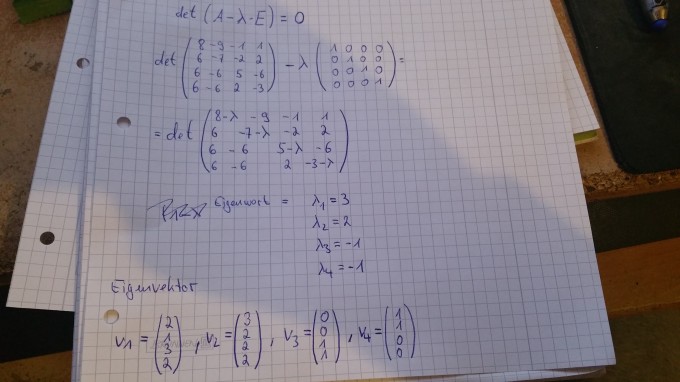 det (A-λ·E) = 0
det (8 -9 -1 1
6 -7 -2 2
6 -6 5 -6
6 -6 2 -3) - λ (1 0 0 0
0 1 0 0
0 0 1 0
0 0 0 1) =
= det (8-λ -9 -1 1
6 -7-λ -2 2
6 -6 5-λ -6
6 -6 2 -3-λ)
Eigenwert = λ1 = 3
λ2 = 2
λ3 = -1
λ4 = -1
Eigenvektor
v1 = (2 1 3 2), v2 = (3 2 2 2), v3 = (0 0 1 1), v4 = (1 1 0 0)